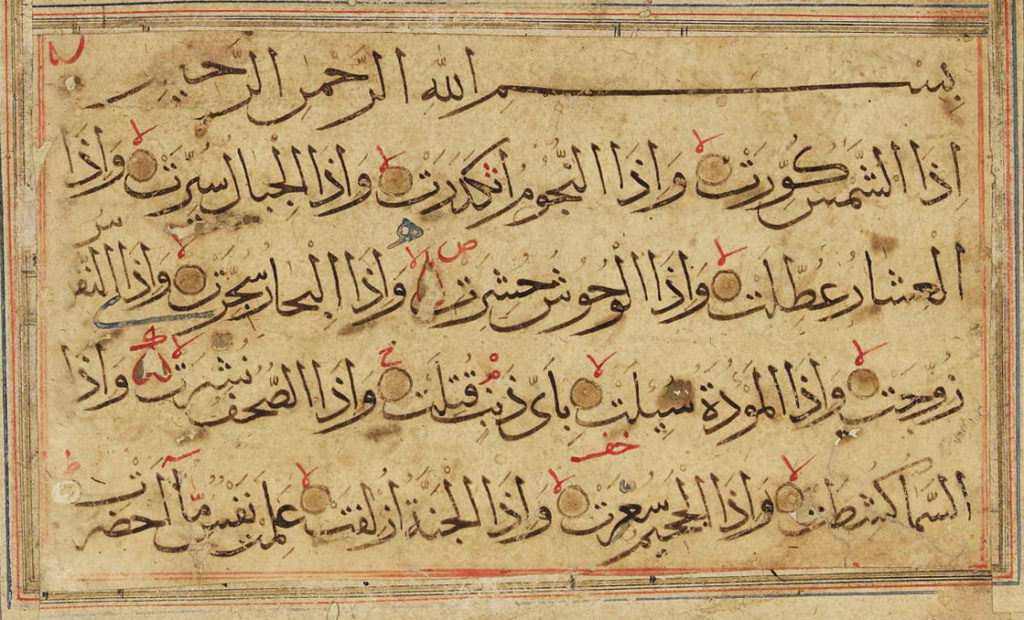 بِسْمِ اللّٰهِ الرَّحْمٰنِ الرَّحِيمِ
اِذَا الشَّمْسُ كُوِّرَتْ وَاِذَا النُّجُوْمُ انْكَدَرَتْ وَاِذَا الْجِبَالُ سُيِّرَتْ وَاِذَا
الْعِشَارُ عُطِّلَتْ وَاِذَا الْوُحُوْشُ حُشِرَتْ وَاِذَا الْبِحَارُ سُجِّرَتْ وَاِذَا النُّفُو
سُ
زُوِّجَتْ وَاِذَا الْمَوْءُدَةُ سُئِلَتْ بِاَىِّ ذَنْبٍ قُتِلَتْ وَاِذَا الصُّحُفُ نُشِرَتْ وَاِذَا
السَّمَا كُشِطَتْ وَاِذَا الْجَحِيْمُ سُعِّرَتْ وَاِذَا الْجَنَّةُ اُزْلِفَتْ عَلِمَتْ نَفْسٌ مَّآ اَحْضَرَتْ